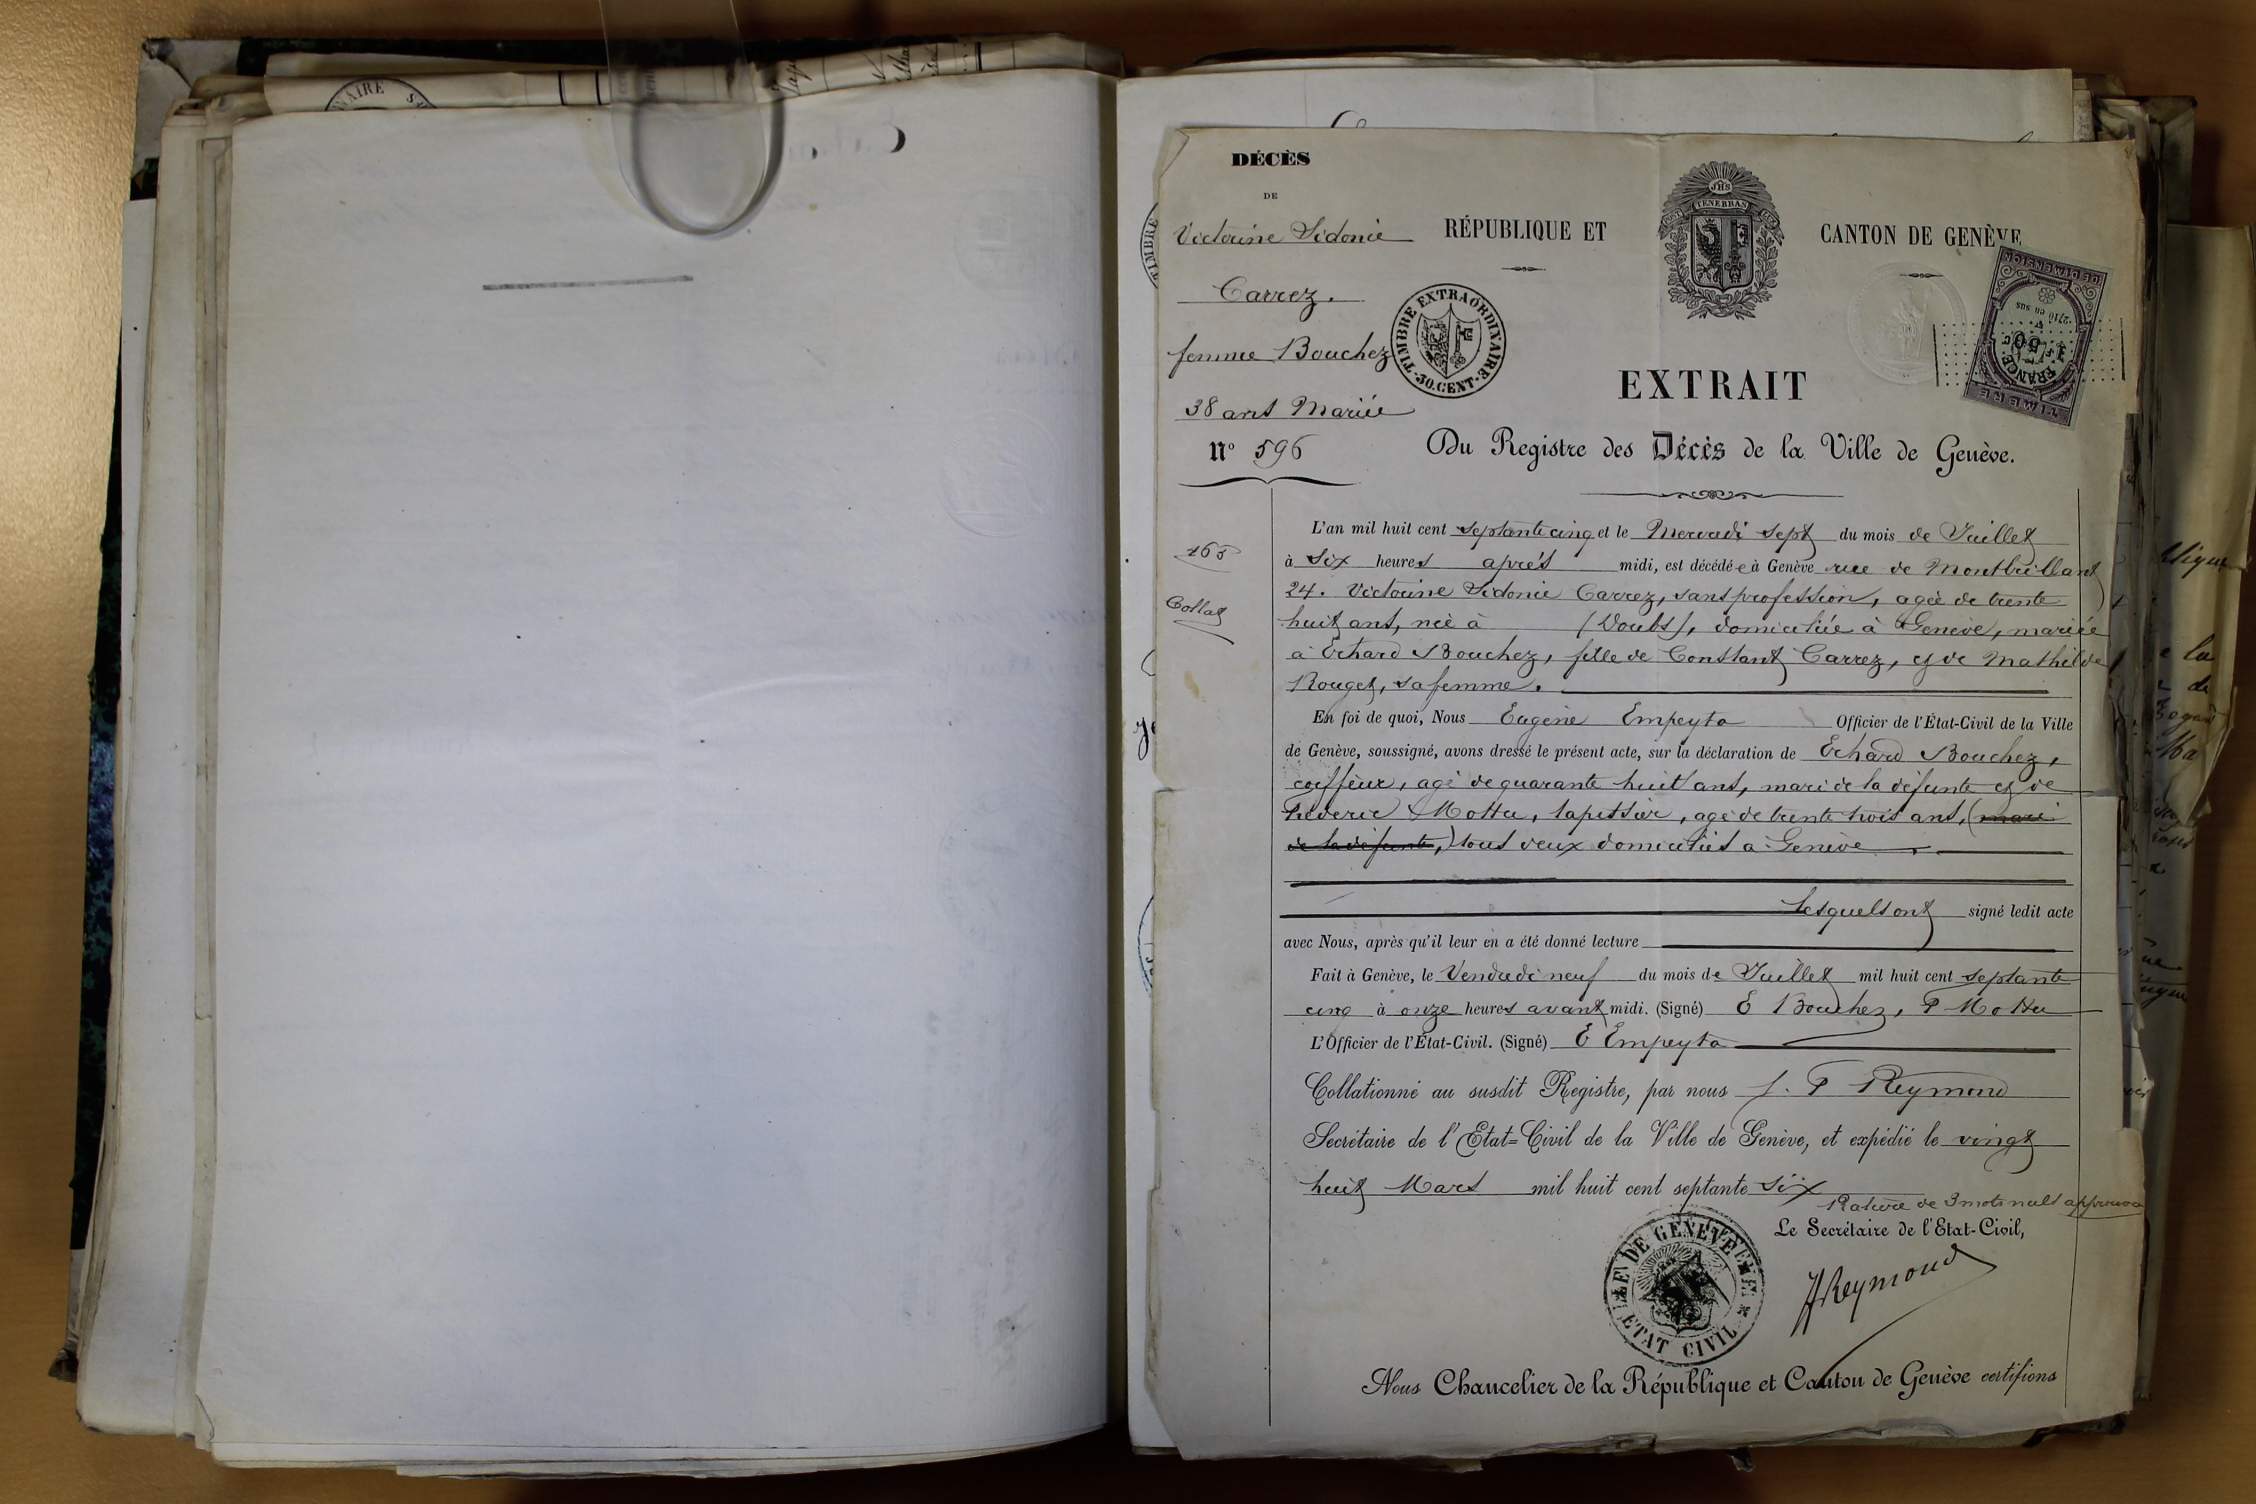 DÉCÈS
DE
Victorine Sidonie
Carrez.
femme Bouchez
38 ans Mariée
No 596
RÉPUBLIQUE ET
CANTON DE GENÈVE
JHS
POST TENEBRAS LUX
TIMBRE EXTRAORDINAIRE
30. CENT.
DE DIMENSION
2/10 en sus
1f 50c
FRANCE
TIMBRE
EXTRAIT
Du Registre des Décès de la Ville de Genève.
165
Collat
L'an mil huit cent septante cinq et le Mercredi sept du mois de Juillet
à Six heures après midi, est décédée à Genève rue de Montbrillant
24. Victorine Sidonie Carrez, sans profession, agée de trente
huit ans, née à (Doubs), domiciliée à Genève, mariée
à Erhard Bouchez, fille de Constant Carrez, et de Mathilde
Rouget, sa femme.
En foi de quoi, Nous Eugène Empeyta Officier de l'État-Civil de la Ville
de Genève, soussigné, avons dressé le présent acte, sur la déclaration de Erhard Bouchez,
coiffeur, agé de quarante huit ans, mari de la défunte et de
Frédéric Mottu, tapissier, agé de trente trois ans, (mari
de la défunte,) tous deux domiciliés à Genève.
Lesquels ont signé ledit acte
avec Nous, après qu'il leur en a été donné lecture
Fait à Genève, le Vendredi neuf du mois de Juillet mil huit cent septante
cinq à onze heures avant midi. (Signé) E Bouchez, F Mottu
L'Officier de l'État-Civil. (Signé) E Empeyta
Collationné au susdit Registre, par nous J. F Reymond
Secrétaire de l'Etat-Civil de la Ville de Genève, et expédié le vingt
huit Mars mil huit cent septante six
Rature de 3 mots nuls approuvée
Le Secrétaire de l'Etat-Civil,
JReymond
VILLE DE GENÈVE
ETAT CIVIL
Nous Chancelier de la République et Canton de Genève certifions